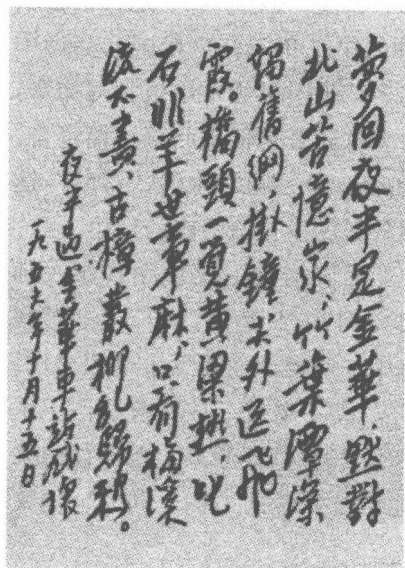 夢回夜半是金華,默對
北山苦憶家,竹葉潭深
舊網,掛鐘尖外送飛
霞。橋頭一覓黃粱,叱
石眠羊世事麻,只有梅溪
流不盡,古樟叢柳亂歸鴉。
夜半過金華車站感懷
一九五六年十月十五日